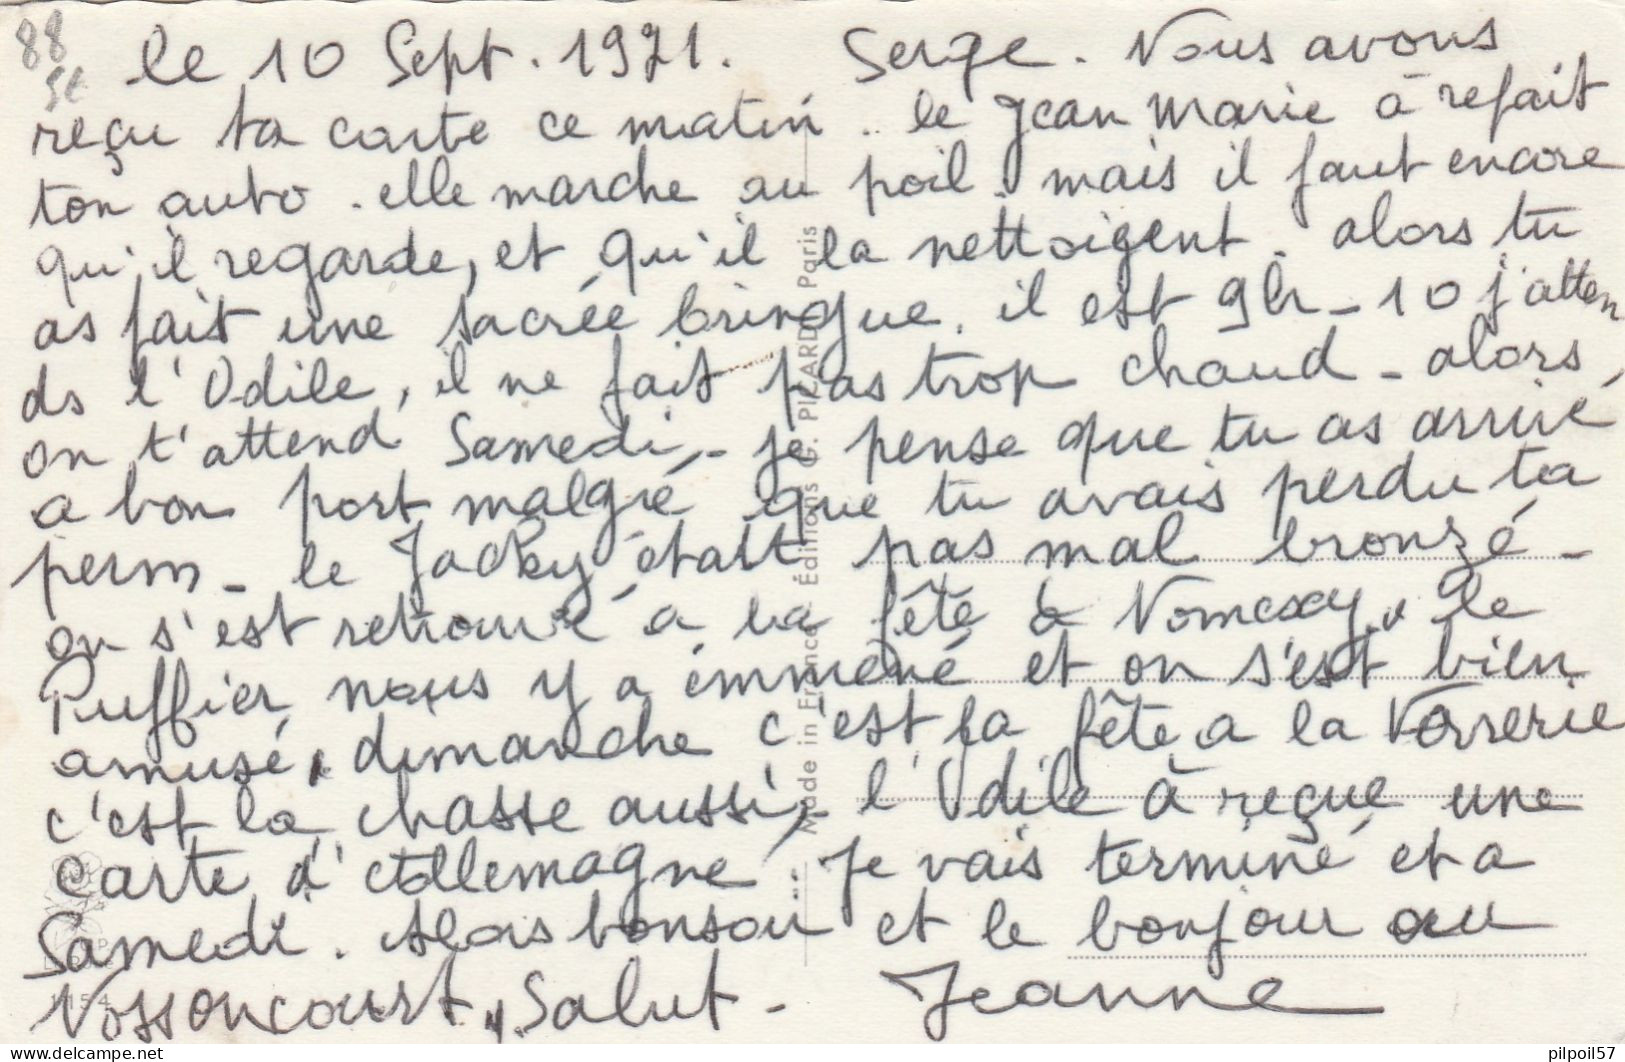 88
le 10 Sept. 1971. Serge. Nous avons
reçu ta carte ce matin. le Jean Marie à refait
ton auto. elle marche au poil. mais il faut encore
qu'il regarde, et qu'il la nettoigent. alors tu
as fait une sacrée bringue. il est 9h-10 j'atten
ds l'Odile, il ne fait pas trop chaud - alors,
on t'attend Samedi, - je pense que tu as arrivé
a bon port malgré que tu avais perdu ta
perm - le Jacky était pas mal bronzé -
on s'est retrouvé a la fête à Nomexy, le
Puffier nous y a émmené et on s'est bien
amusé, dimanche c'est la fête a la Verrerie
c'est la chasse aussi, l'Odile à reçue une
carte d'Allemagne. Je vais terminé et a
Samedi. Alors bonsoir et le bonjour au
Nossoncourt, Salut - Jeanne
Made in France Éditions G. PICARD Paris
1154
pilpoil57